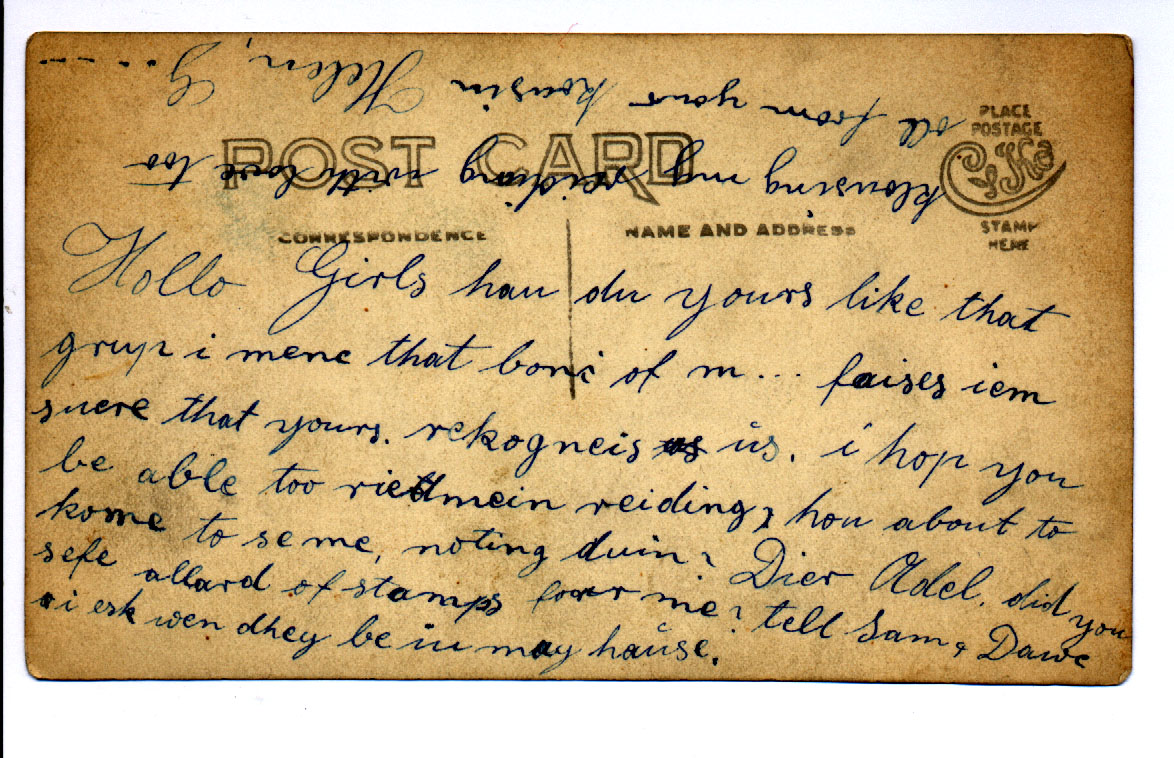 POST CARD
PLACE
POSTAGE
STAMP
HERE
CORRESPONDENCE
NAME AND ADDRESS
Hollo Girls hau du yours like that
grup i mene that of m... faises iem
suere that yours. rekogneis us us. i hop you
be able too reiding, hou about to
kome to se me, noting duin? Dier Adel. did you
sefe allard of stamps forr me? tell Sam & Dawe
i esk wen dhey be in may hause.
klousing my reiding with love too
oll from your kousin Helen, G.....